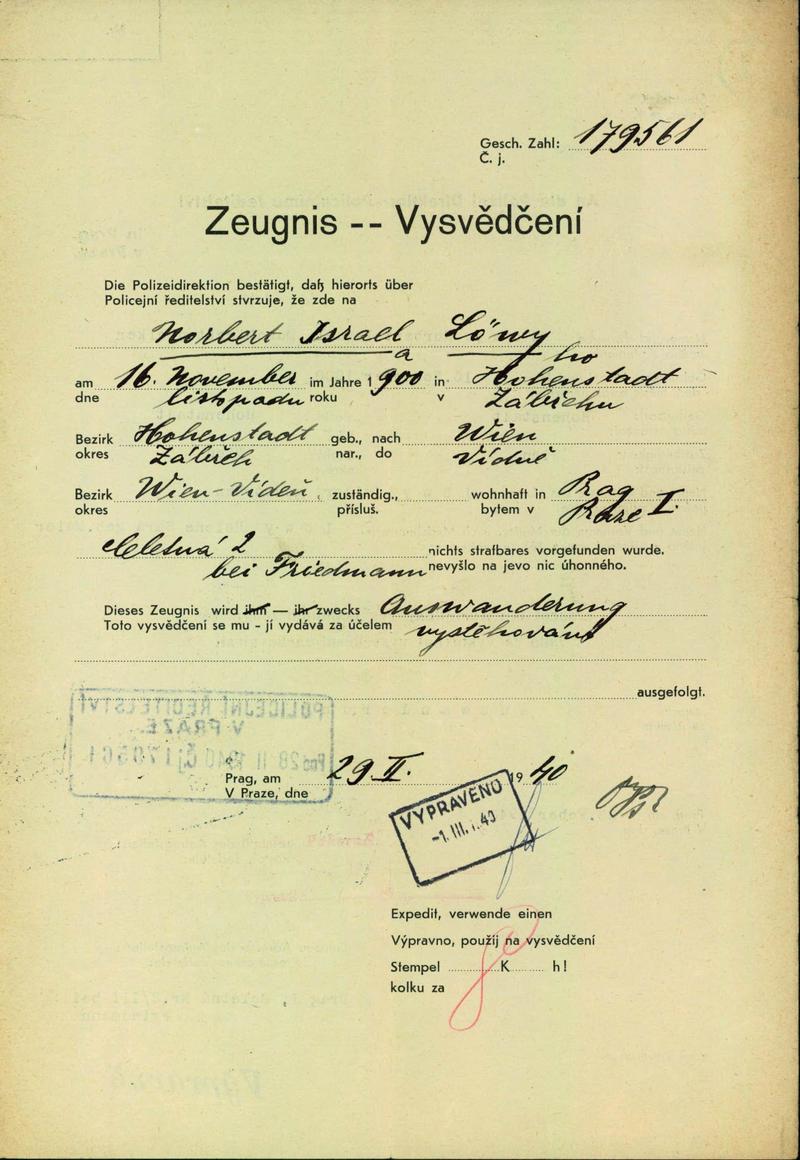 Gesch. Zahl: 179561
Č. j.
Zeugnis -- Vysvědčení
Die Polizeidirektion bestätigt, daß hierorts über
Policejní ředitelství stvrzuje, že zde na
Norbert Israel Löwy
a ho
am 16. November im Jahre 1900 in Hohenstadt
dne listopadu roku v Zábřehu
Bezirk Hohenstadt geb., nach Wien
okres Zábřeh nar., do Vídně
Bezirk Wien-Vídeň, zuständig., wohnhaft in Prag I.
okres přísluš. bytem v Praze
Celetná 2 nichts strafbares vorgefunden wurde.
bei Friedmann nevyšlo na jevo nic úhonného.
Dieses Zeugnis wird ihm — ihr zwecks Auswanderung
Toto vysvědčení se mu - jí vydává za účelem vystěhování
ausgefolgt.
POLICEJNÍ ŘEDITELSTVÍ
V PRAZE
Prag, am 29. II. 1940
V Praze, dne
VYPRAVENO
-1. III. 40
Expedit, verwende einen
Výpravno, použij na vysvědčení
Stempel K h!
kolku za